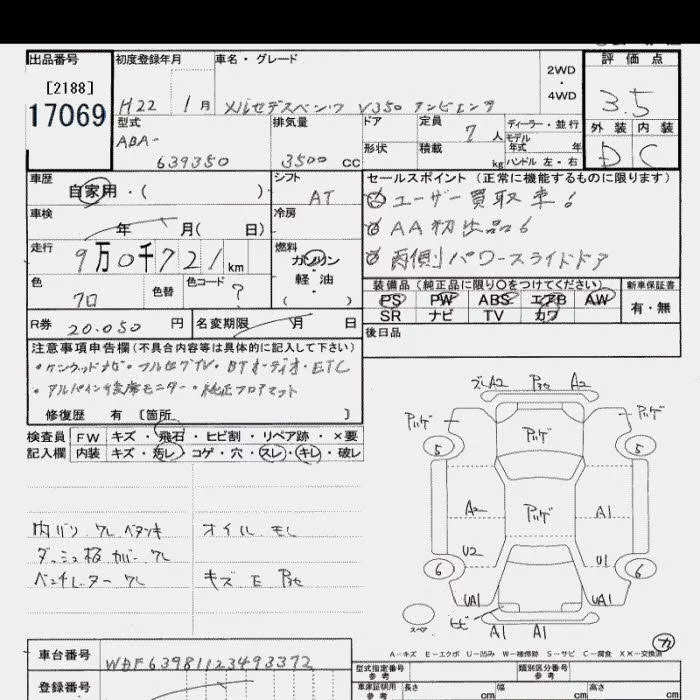 出品番号
[2188]
17069
初度登録年月
H22 1月
車名・グレード
メルセデスベンツ V350 アンビエンテ
2WD
・
4WD
評価点
3.5
外装 内装
D C
型式
ABA-
639350
排気量
3500 cc
ドア
形状
定員
7人
積載
kg
ディーラー・並行
モデル
年式 年
ハンドル 左・右
車歴
自家用・( )
シフト
AT
車検
年 月( 日)
冷房
走行
9万0千721km
燃料
ガソリン
・
軽油
( )
色
クロ
色替
色コード
?
R券
20.050 円
名変期限 月 日
セールスポイント (正常に機能するものに限ります)
ユーザー買取車!
AA初出品!
両側パワースライドドア
装備品(純正品に限り○をつけてください)
PS PW ABS エアB AW
SR ナビ TV カワ
新車保証書
有・無
後日品
注意事項申告欄(不具合内容等は具体的に記入して下さい)
・ケンウッドナビ・フルセグTV・BTオーディオ・ETC
・アルパイン後席モニター・純正フロアマット
修復歴 有 〔箇所 〕
検査員
記入欄
FW キズ・飛石・ヒビ割・リペア跡・×要
内装 キズ・汚レ・コゲ・穴・スレ・キレ・破レ
内バリ ワレ ベタツキ
オイル モレ
ダッシュ板 カバー ワレ
ベンチレーター ワレ
キズ E Pセ
ズレA2 Pセ A2
Pハゲ
Pハゲ
Pハゲ
5
5
A2
Pハゲ
A1
U2
U1
6
6
UA1
UA1
ヒビ
A1 A1
スペア
カ
A-キズ E-エクボ U-凹み W-補修跡 S-サビ C-腐食 XX-交換済
車台番号
WDF63981123493372
登録番号
型式指定番号
参考
類別区分番号
参考
車庫証明用
参考
長さ cm
幅 cm
高さ cm